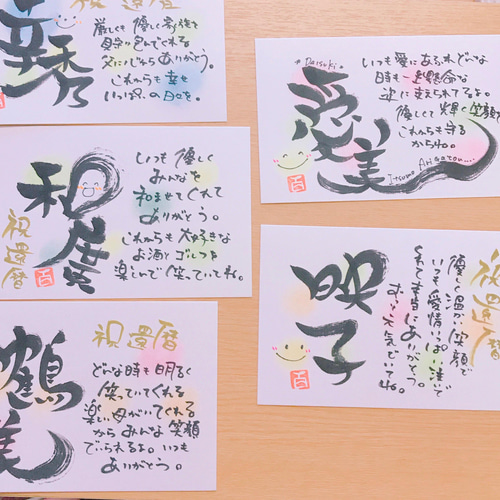 祝還暦
秀
厳しくも優しく家族を
包んでくれる
父に心からありがとう。
これからも幸せ
いっぱいの日々を。
Daisuki
愛美
いつも愛にあふれどんな
時も一生懸命な
優しくて輝く笑顔
これからも守る
からね。
Itsumo Arigatou....
和廣
祝還暦
いつも優しく
みんなを
和ませてくれて
ありがとう。
これからも大好きな
お酒とゴルフを
楽しんで笑っていてね。
映子
祝還暦
優しく温かい笑顔で
いつも愛情いっぱい注いで
くれて本当にありがとう。
ずっと元気でいてね。
鶴美
祝還暦
どんな時も明るく
笑っていてくれる
楽しい母がいてくれる
からみんな笑顔
でいられるよ。いつも
ありがとう。